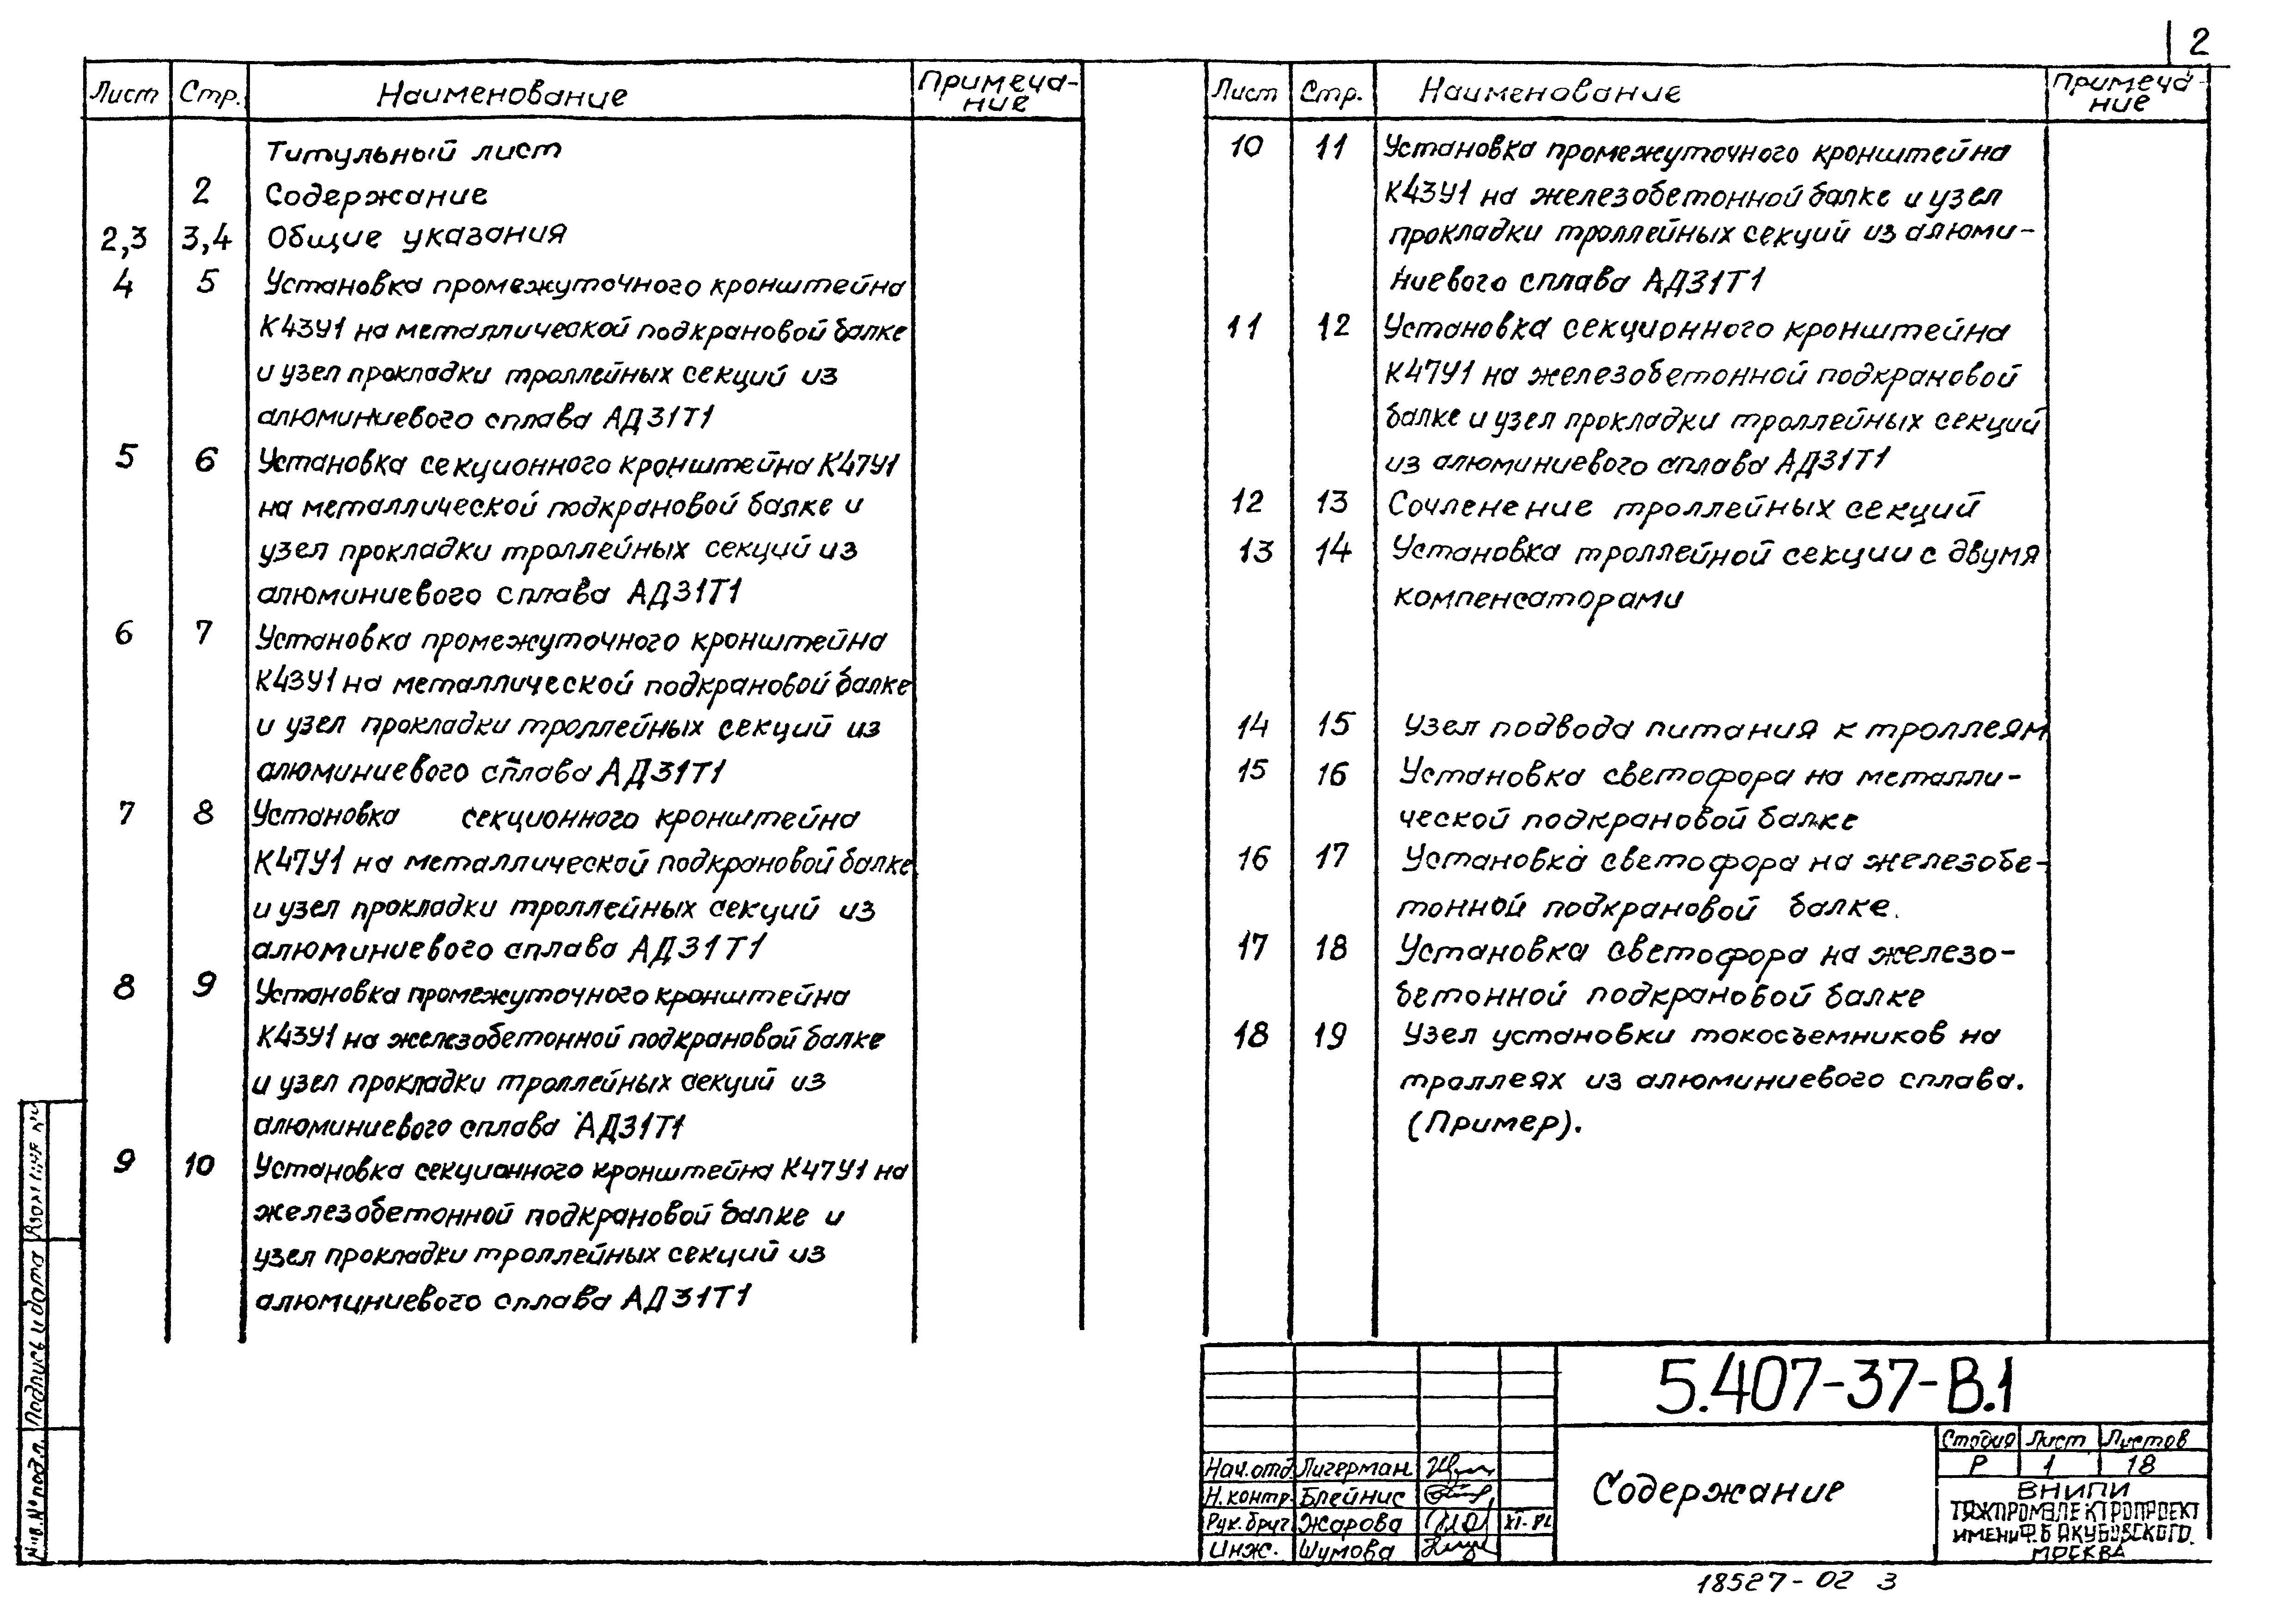 2
Лист Стр. Наименование Примеча-
ние
Титульный лист
2 Содержание
2,3 3,4 Общие указания
4 5 Установка промежуточного кронштейна
К43У1 на металлической подкрановой балке
и узел прокладки троллейных секций из
алюминиевого сплава АД31Т1
5 6 Установка секционного кронштейна К47У1
на металлической подкрановой балке и
узел прокладки троллейных секций из
алюминиевого сплава АД31Т1
6 7 Установка промежуточного кронштейна
К43У1 на металлической подкрановой балке
и узел прокладки троллейных секций из
алюминиевого сплава АД31Т1
7 8 Установка секционного кронштейна
К47У1 на металлической подкрановой балке
и узел прокладки троллейных секций из
алюминиевого сплава АД31Т1
8 9 Установка промежуточного кронштейна
К43У1 на железобетонной подкрановой балке
и узел прокладки троллейных секций из
алюминиевого сплава АД31Т1
9 10 Установка секционного кронштейна К47У1 на
железобетонной подкрановой балке и
узел прокладки троллейных секций из
алюминиевого сплава АД31Т1
Лист Стр. Наименование Примеча-
ние
10 11 Установка промежуточного кронштейна
К43У1 на железобетонной балке и узел
прокладки троллейных секций из алюми-
ниевого сплава АД31Т1
11 12 Установка секционного кронштейна
К47У1 на железобетонной подкрановой
балке и узел прокладки троллейных секций
из алюминиевого сплава АД31Т1
12 13 Сочленение троллейных секций
13 14 Установка троллейной секции с двумя
компенсаторами
14 15 Узел подвода питания к троллеям
15 16 Установка светофора на металли-
ческой подкрановой балке
16 17 Установка светофора на железобе-
тонной подкрановой балке.
17 18 Установка светофора на железо-
бетонной подкрановой балке
18 19 Узел установки токосъемников на
троллеях из алюминиевого сплава.
(Пример).
5.407-37-В.1
Нач.отд. Лигерман
Н.контр. Блейнис
Рук.бриг. Жарова
Инж. Шумова
Содержание
Стадия Лист Листов
Р 1 18
ВНИПИ
ТЯЖПРОМЭЛЕКТРОПРОЕКТ
ИМЕНИ Ф.Б.ЯКУБОВСКОГО.
МОСКВА
18527-02 3
Инв.№ подл. Подпись и дата